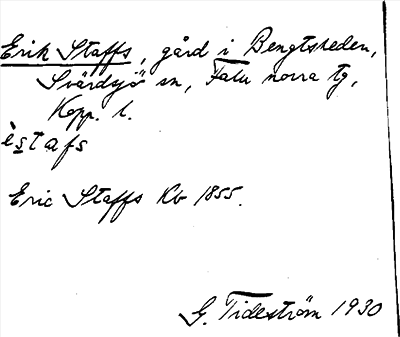 Erik Staffs, gård i Bengtsheden,
Svärdsjö sn, Falu norra tg,
Kopp. l.
èstafs
Eric Staffs Kb 1855.
G. Tideström 1930